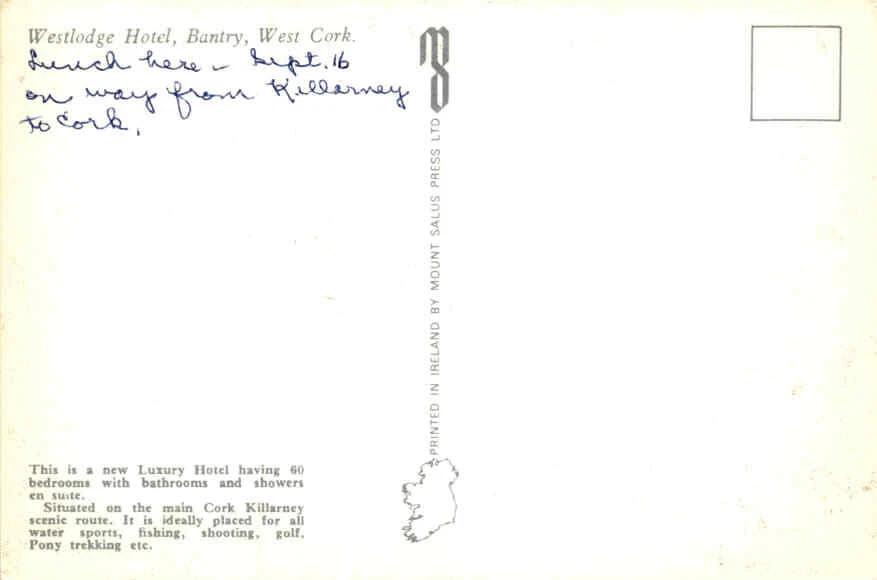 Westlodge Hotel, Bantry, West Cork.
Lunch here – Sept. 16
on way from Killarney
to Cork.
PRINTED IN IRELAND BY MOUNT SALUS PRESS LTD
This is a new Luxury Hotel having 60
bedrooms with bathrooms and showers
en suite.
Situated on the main Cork Killarney
scenic route. It is ideally placed for all
water sports, fishing, shooting, golf,
Pony trekking etc.